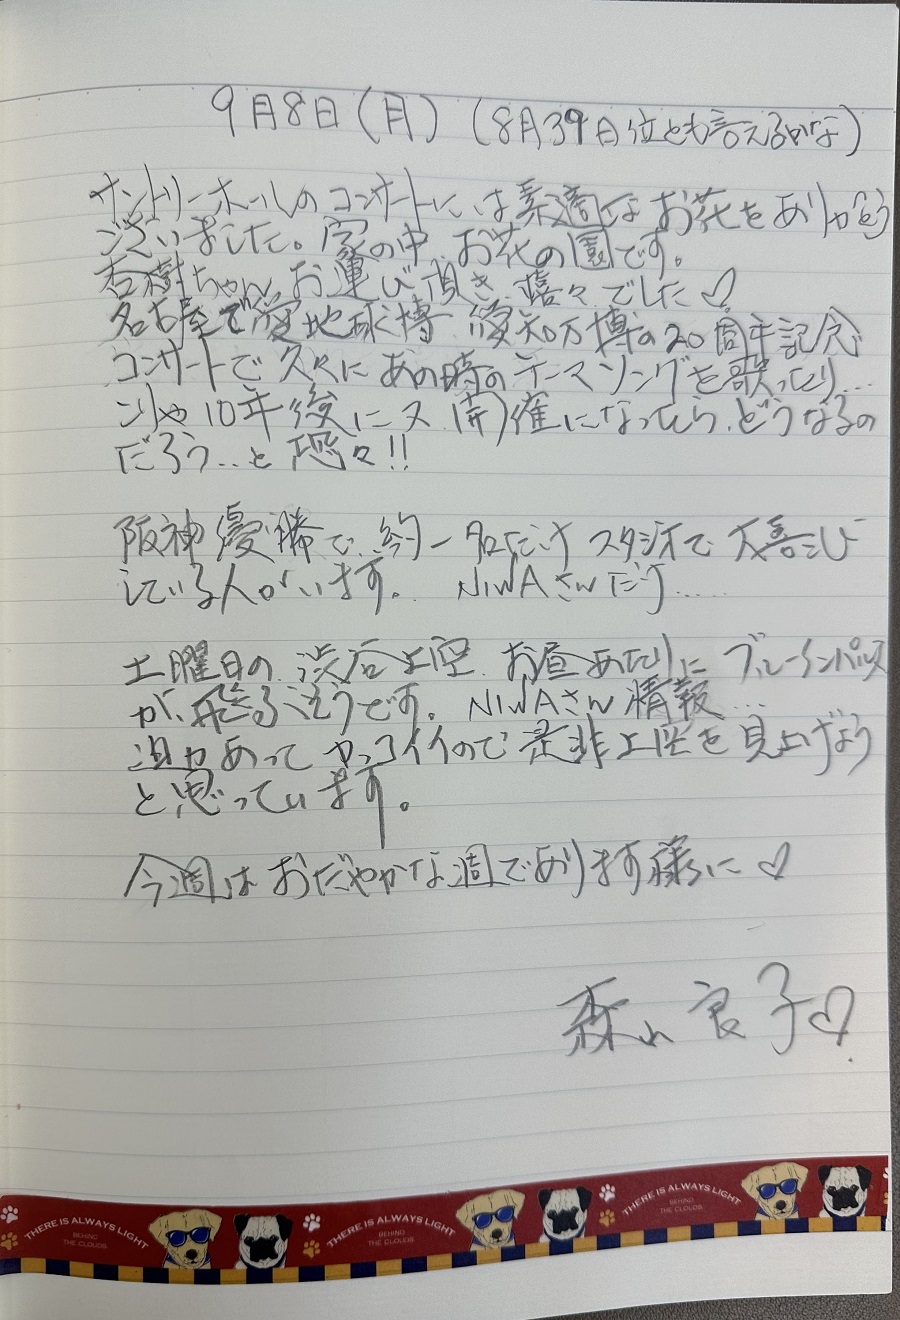 9月8日(月) (8月39日位とも言えるかな)
サントリーホールのコンサートには素適なお花をありがとう
ございました。家の中、お花の園です。
杏樹ちゃん お運び頂き 嬉々でした♡
名古屋で愛地球博 愛知万博の20周年記念
コンサートで久々にあの時のテーマソングを歌ったり…
こりゃ10年後にス 開催になったら、どうなるの
だろう..と 恐々!!
阪神優勝で、約一名だけ スタジオで大喜こび
している人がいます。 NIWAさんだ……
土曜日の 渋谷上空 お昼あたりに ブルーインパルス
が、飛ぶそうです。 NIWAさん情報…
迫力あって カッコイイので 是非上空を見上げよう
と思っています。
今週は おだやかな週であります様に♡
森山良子♡
THERE IS ALWAYS LIGHT
BEHIND
THE CLOUDS
THERE IS ALWAYS LIGHT
BEHIND
THE CLOUDS
THERE IS ALWAYS LIGHT
BEHIND
THE CLOUDS